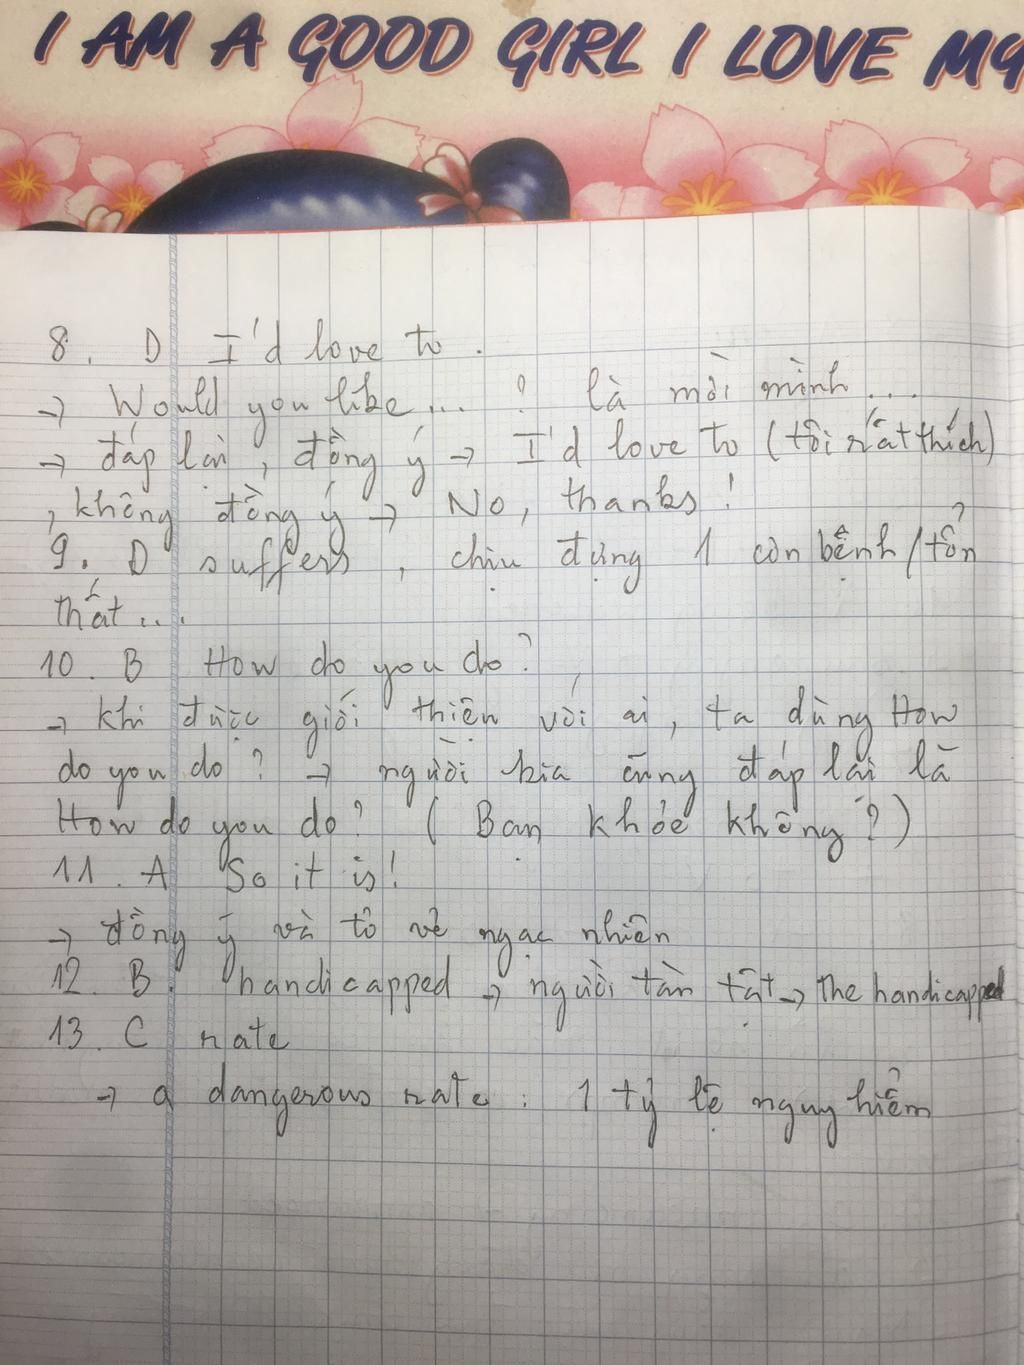 I AM A GOOD GIRL I LOVE MY
8. D I'd love to.
→ Would you like... ? là mời mình...
→ đáp lại, đồng ý → I'd love to (tôi rất thích)
, không đồng ý → No, thanks!
9. D suffers, chịu đựng 1 cơn bệnh/tổn
thất...
10. B How do you do?
→ khi được giới thiện với ai, ta dùng How
do you do? → người kia cũng đáp lại là
How do you do? (Bạn khỏe không?)
11. A So it is!
→ đồng ý và tỏ vẻ ngạc nhiên
12. B. handicapped → người tàn tật → the handicapped
13. C rate
→ a dangerous rate: 1 tỷ lệ nguy hiểm